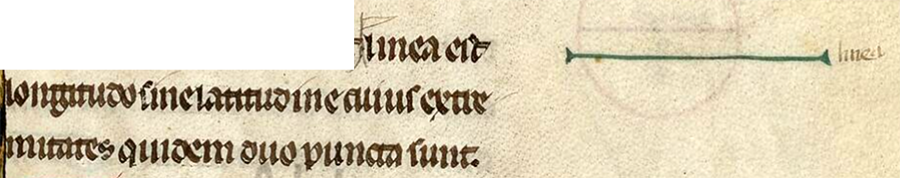 linea est
linea
longitudo sine latitudine cuius extre
mitates quidem duo puncta sunt.